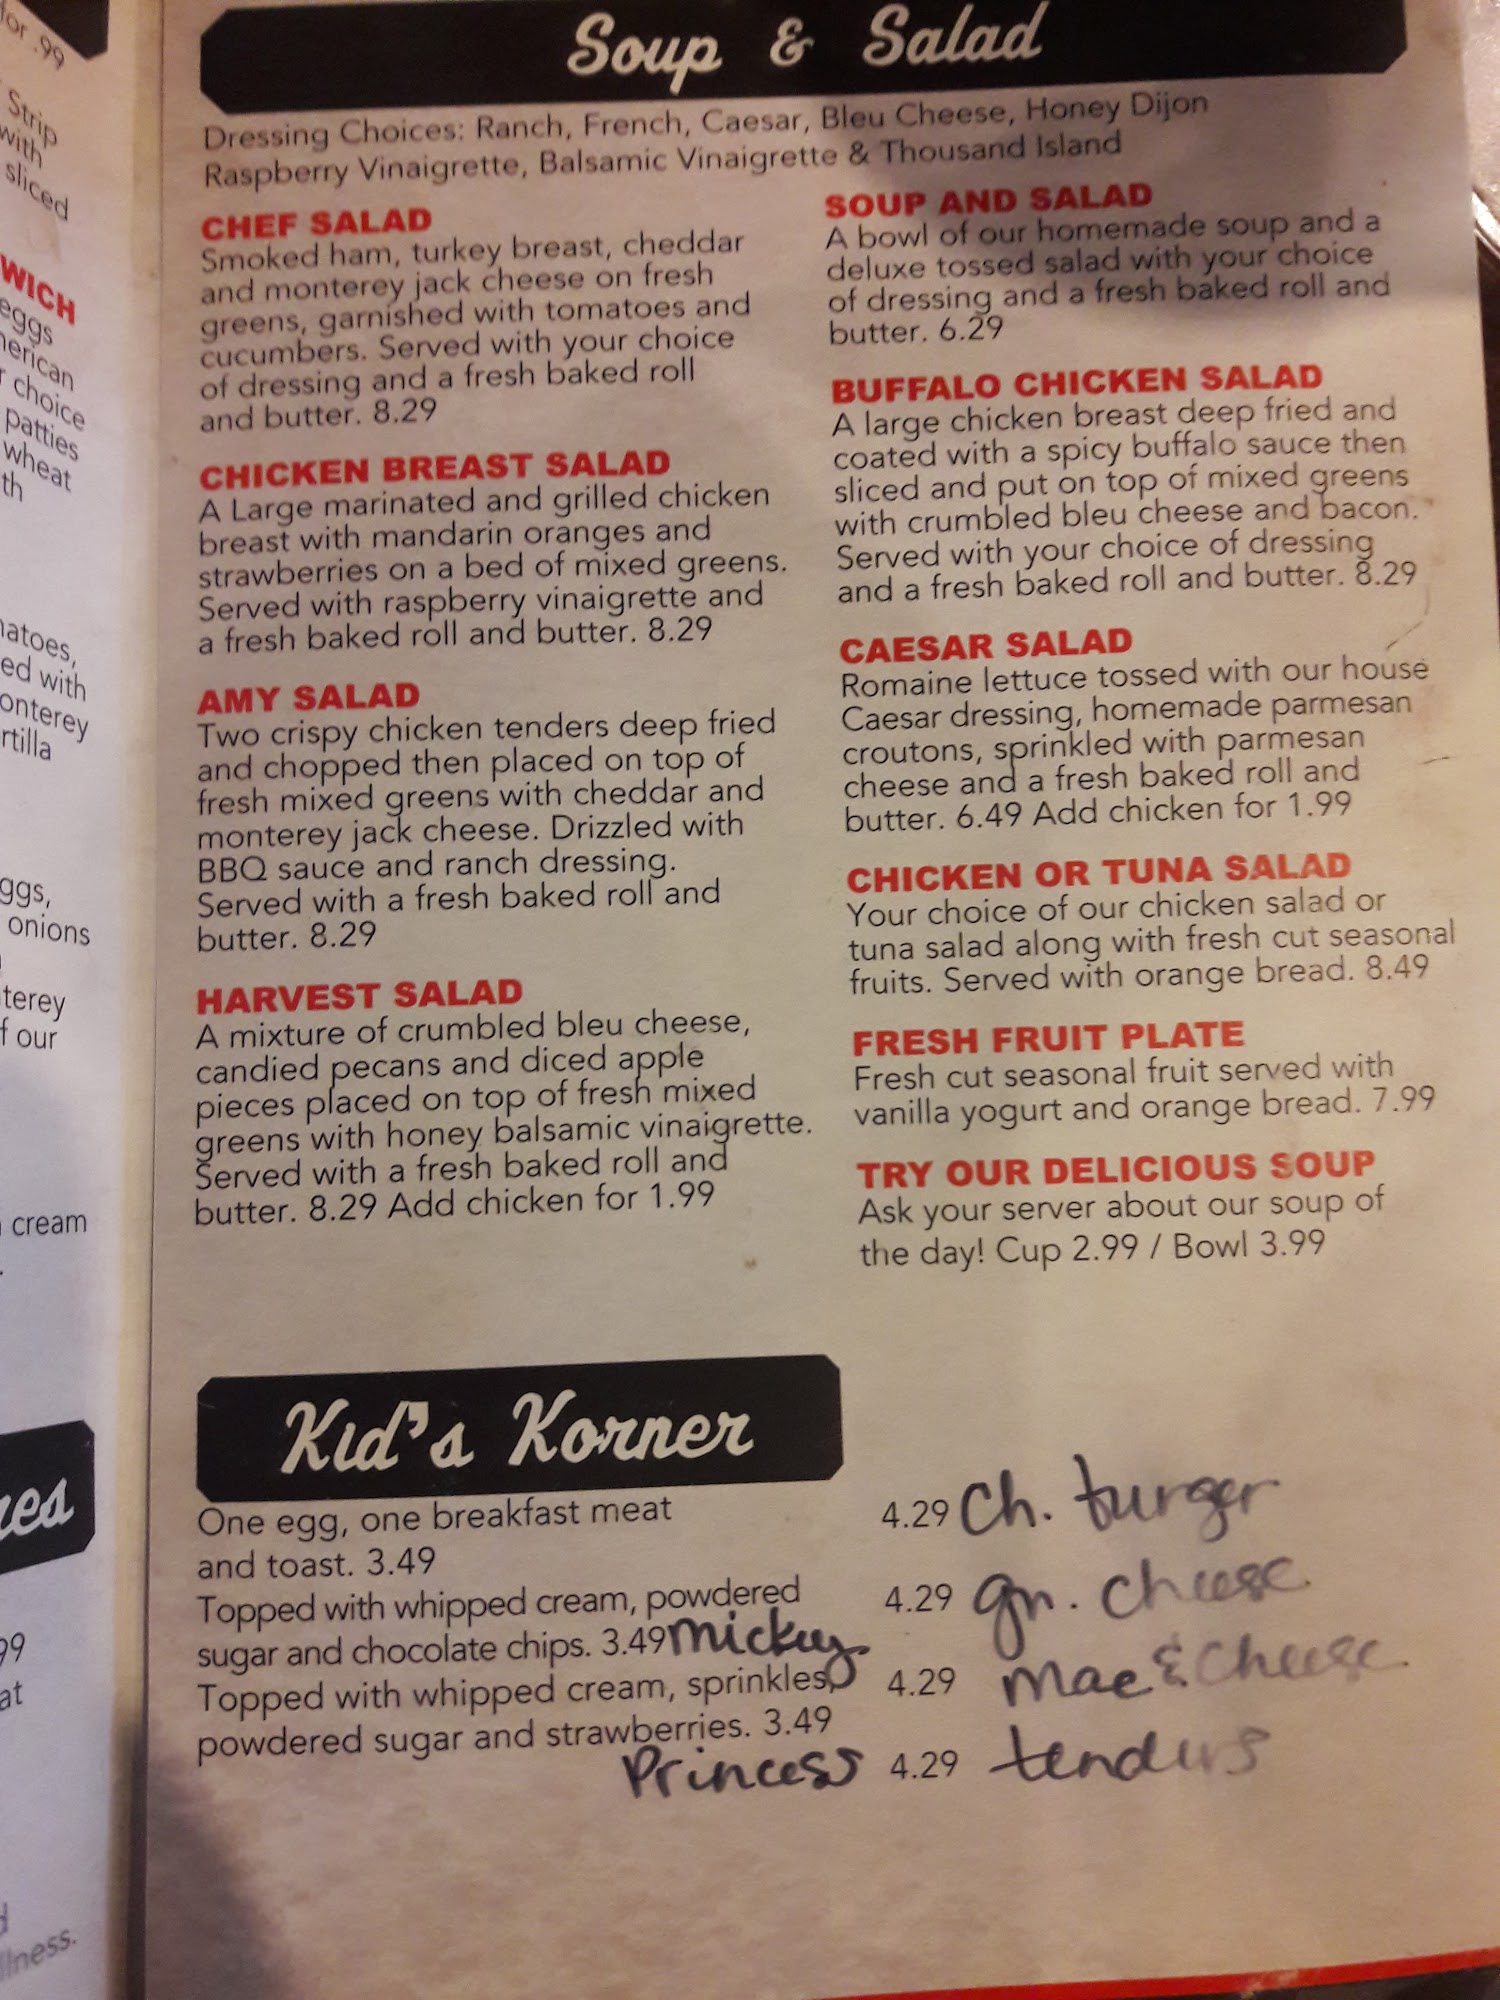 for .99
Strip
with
sliced
WICH
eggs
nerican
choice
patties
wheat
th
natoes,
ed with
onterey
rtilla
ggs,
onions
terey
f our
cream
99
at
llness.
Soup & Salad
Dressing Choices: Ranch, French, Caesar, Bleu Cheese, Honey Dijon
Raspberry Vinaigrette, Balsamic Vinaigrette & Thousand Island
CHEF SALAD
Smoked ham, turkey breast, cheddar
and monterey jack cheese on fresh
greens, garnished with tomatoes and
cucumbers. Served with your choice
of dressing and a fresh baked roll
and butter. 8.29
CHICKEN BREAST SALAD
A Large marinated and grilled chicken
breast with mandarin oranges and
strawberries on a bed of mixed greens.
Served with raspberry vinaigrette and
a fresh baked roll and butter. 8.29
AMY SALAD
Two crispy chicken tenders deep fried
and chopped then placed on top of
fresh mixed greens with cheddar and
monterey jack cheese. Drizzled with
BBQ sauce and ranch dressing.
Served with a fresh baked roll and
butter. 8.29
HARVEST SALAD
A mixture of crumbled bleu cheese,
candied pecans and diced apple
pieces placed on top of fresh mixed
greens with honey balsamic vinaigrette.
Served with a fresh baked roll and
butter. 8.29 Add chicken for 1.99
SOUP AND SALAD
A bowl of our homemade soup and a
deluxe tossed salad with your choice
of dressing and a fresh baked roll and
butter. 6.29
BUFFALO CHICKEN SALAD
A large chicken breast deep fried and
coated with a spicy buffalo sauce then
sliced and put on top of mixed greens
with crumbled bleu cheese and bacon.
Served with your choice of dressing
and a fresh baked roll and butter. 8.29
CAESAR SALAD
Romaine lettuce tossed with our house
Caesar dressing, homemade parmesan
croutons, sprinkled with parmesan
cheese and a fresh baked roll and
butter. 6.49 Add chicken for 1.99
CHICKEN OR TUNA SALAD
Your choice of our chicken salad or
tuna salad along with fresh cut seasonal
fruits. Served with orange bread. 8.49
FRESH FRUIT PLATE
Fresh cut seasonal fruit served with
vanilla yogurt and orange bread. 7.99
TRY OUR DELICIOUS SOUP
Ask your server about our soup of
the day! Cup 2.99 / Bowl 3.99
Kid's Korner
One egg, one breakfast meat
and toast. 3.49
Topped with whipped cream, powdered
sugar and chocolate chips. 3.49 mickey
Topped with whipped cream, sprinkles,
powdered sugar and strawberries. 3.49
Princess
4.29 Ch. burger
4.29 gr. cheese
4.29 mac & cheese
4.29 tenders